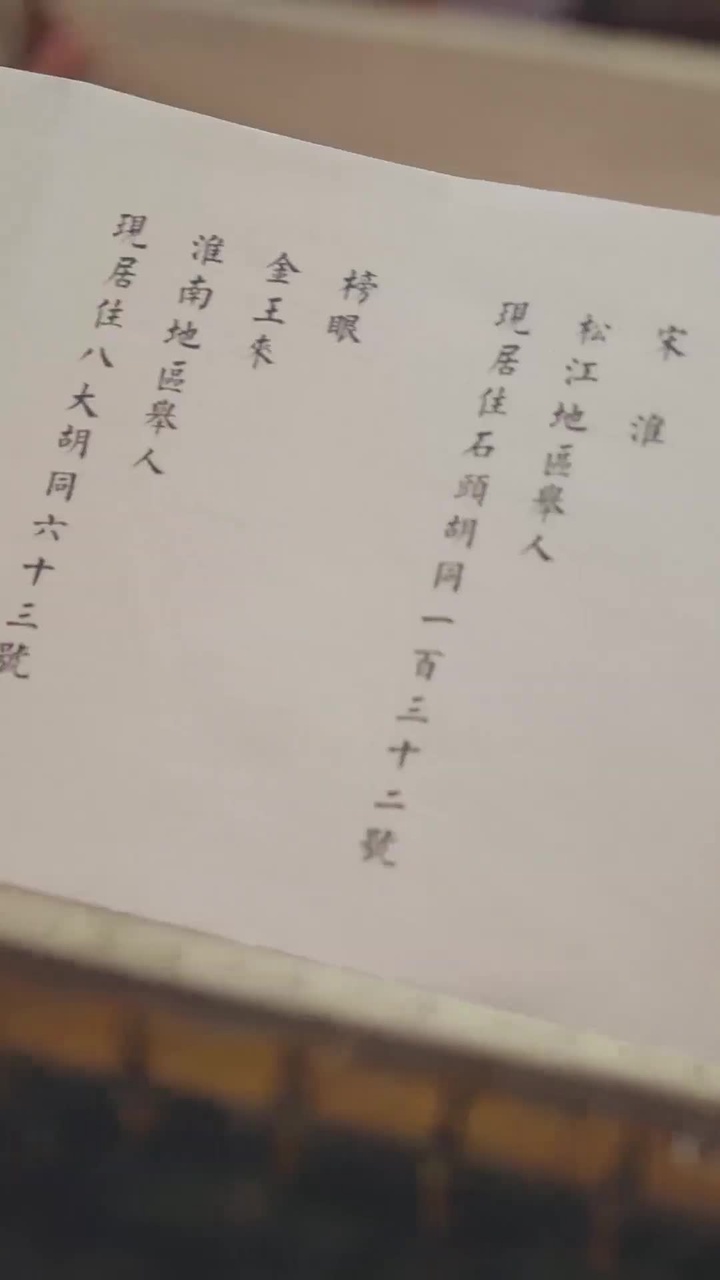 宋淮
松江地區舉人
現居住石頭胡同一百三十二號
榜眼
金王來
淮南地區舉人
現居住八大胡同六十三號